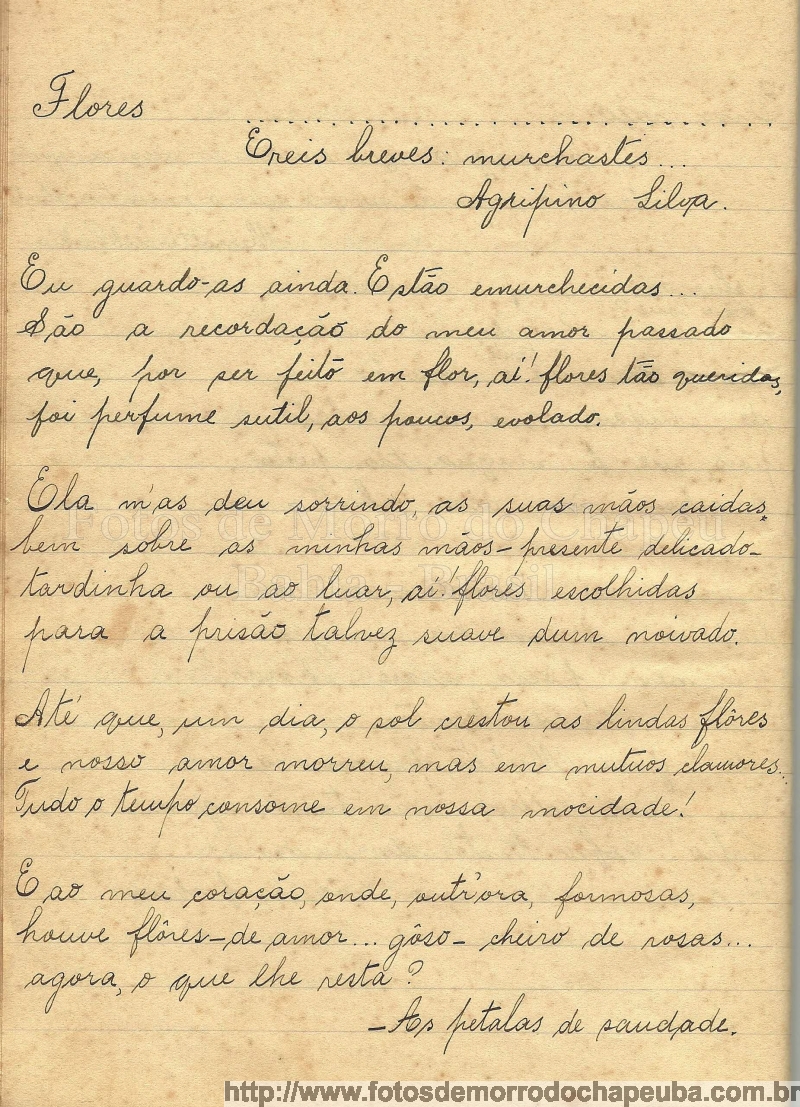 Flores
................................
Ereis breves: murchastes...
Agripino Silva.
Eu guardo-as ainda. Estão emurchecidas...
São a recordação do meu amor passado
que, por ser feito em flor, aí! flores tão queridas,
foi perfume sutil, aos poucos, evolado.
Ela m'as deu sorrindo, as suas mãos caidas,
bem sobre as minhas mãos - presente delicado -
tardinha ou ao luar, aí! flores escolhidas
para a prisão talvez suave dum noivado.
Até que, um dia, o sol crestou as lindas flôres
e nosso amor morreu, mas em mutuos clamores...
Tudo o tempo consome em nossa mocidade!
E ao meu coração, onde, outr'ora, formosas,
houve flôres - de amor... gôso - cheiro de rosas...
agora, o que lhe resta?
- As petalas de saudade.
Fotos de Morro do Chapéu
Bahia - Brasil
http://www.fotosdemorrodochapeuba.com.br